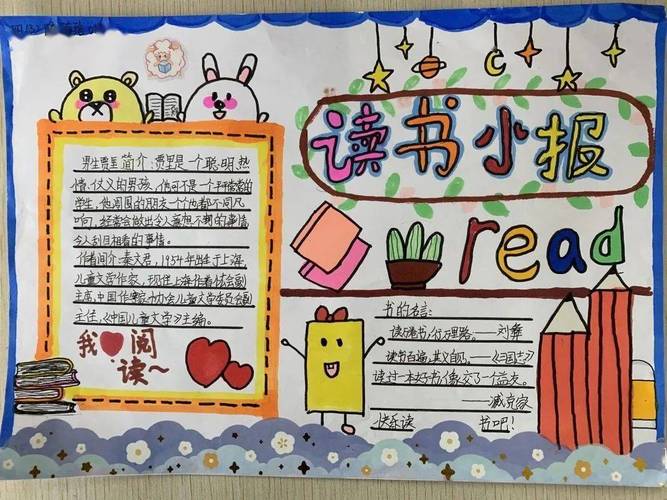 读书小报
read
男生贾里简介:贾里是一个聪明、热
情、仗义的男孩,他可不是一个平的
学生,他周围的朋友一个个也都不同凡
响,经常会做出令人意想不到的事情
令人刮目相看的事情。
作者间介:秦文君,1954年出生于上海
儿童文学作家,现任上海作者协会副
主席,中国作家协会儿童文学委员会副
主任,《中国儿童文学》主编。
我 阅
读~
书的名言:
读万卷书,行万里路。——刘彝
读书百遍,其义自见。——《三国志》
读过一本好书,像交了一个益友。
——臧克家
快乐读 书吧!